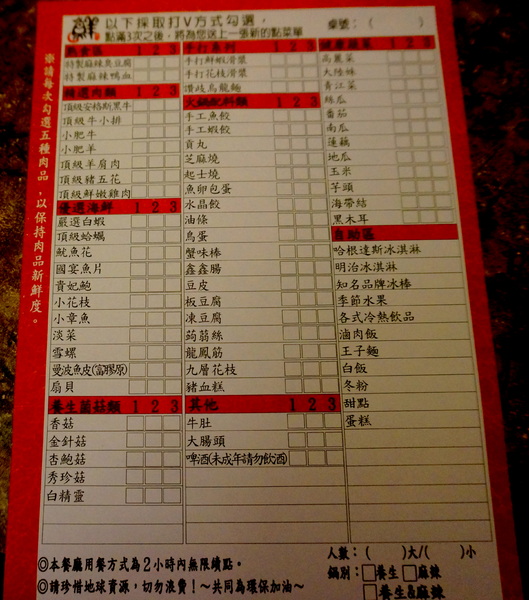 鮮
以下採取打V方式勾選，
點滿3次之後，將為您送上一張新的點菜單
桌號：( )
※請每次勾選五種肉品，以保持肉品新鮮度。
熟食區 1 2 3
特製麻辣臭豆腐
特製麻辣鴨血
精選肉類 1 2 3
頂級安格斯黑牛
頂級牛小排
小肥牛
小肥羊
頂級羊肩肉
頂級豬五花
頂級鮮嫩雞肉
優選海鮮 1 2 3
嚴選白蝦
頂級蛤蠣
魷魚花
國宴魚片
貴妃鮑
小花枝
小章魚
淡菜
雪螺
曼波魚皮(富膠原)
扇貝
養生菌菇類 1 2 3
香菇
金針菇
杏鮑菇
秀珍菇
白精靈
手打魚漿 1 2 3
手打鮮蝦滑漿
手打花枝滑漿
讚岐烏龍麵
火鍋餃料類 1 2 3
手工魚餃
手工蝦餃
貢丸
芝麻燒
起士燒
魚卵包蛋
水晶餃
油條
鳥蛋
蟹味棒
鑫鑫腸
豆皮
板豆腐
凍豆腐
蒟蒻絲
龍鳳筋
九層花枝
豬血糕
其他 1 2 3
牛肚
大腸頭
啤酒(未成年請勿飲酒)
健康蔬菜 1 2 3
高麗菜
大陸妹
青江菜
絲瓜
番茄
南瓜
蓮藕
地瓜
玉米
芋頭
海帶結
黑木耳
自助區
哈根達斯冰淇淋
明治冰淇淋
知名品牌冰棒
季節水果
各式冷熱飲品
滷肉飯
王子麵
白飯
冬粉
甜點
蛋糕
◎本餐廳用餐方式為2小時內無限續點。
◎請珍惜地球資源，切勿浪費！～共同為環保加油～
人數：( )大/( )小
鍋別：□養生 □麻辣
□養生&麻辣